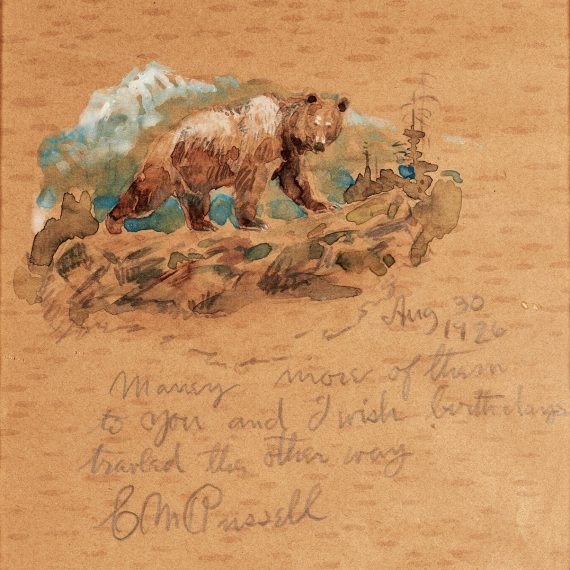 Aug 30
1926
Maney more of them
to you and I wish berthdays
travled the other way
C M Russell